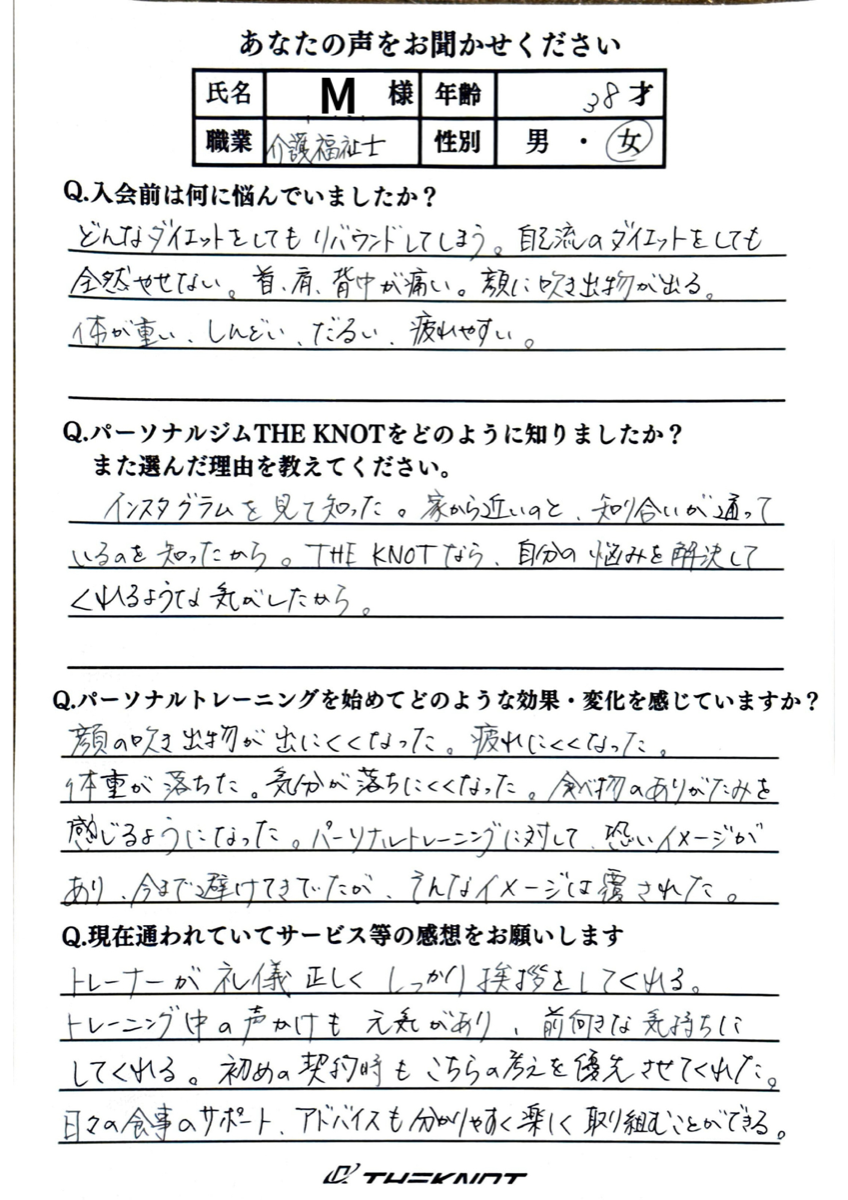 あなたの声をお聞かせください
氏名 M 様 年齢 38才
職業 介護福祉士 性別 男・女
Q.入会前は何に悩んでいましたか？
どんなダイエットをしてもリバウンドしてしまう。自己流のダイエットをしても
全然やせない。首、肩、背中が痛い。顔に吹き出物が出る。
体が重い、しんどい、だるい、疲れやすい。
Q.パーソナルジムTHE KNOTをどのように知りましたか？
また選んだ理由を教えてください。
インスタグラムを見て知った。家から近いのと、知り合いが通って
いるのを知ったから。THE KNOTなら、自分の悩みを解決して
くれるような気がしたから。
Q.パーソナルトレーニングを始めてどのような効果・変化を感じていますか？
顔の吹き出物が出にくくなった。疲れにくくなった。
体重が落ちた。気分が落ちにくくなった。食べ物のありがたみを
感じるようになった。パーソナルトレーニングに対して、恐いイメージが
あり、今まで避けてきでたが、そんなイメージは覆された。
Q.現在通われていてサービス等の感想をお願いします
トレーナーが礼儀正しくしっかり挨拶をしてくれる。
トレーニング中の声かけも元気があり、前向きな気持ちに
してくれる。初めの契約時もこちらの考えを優先させてくれた。
日々の食事のサポート、アドバイスも分かりやすく楽しく取り組むことができる。
THE KNOT